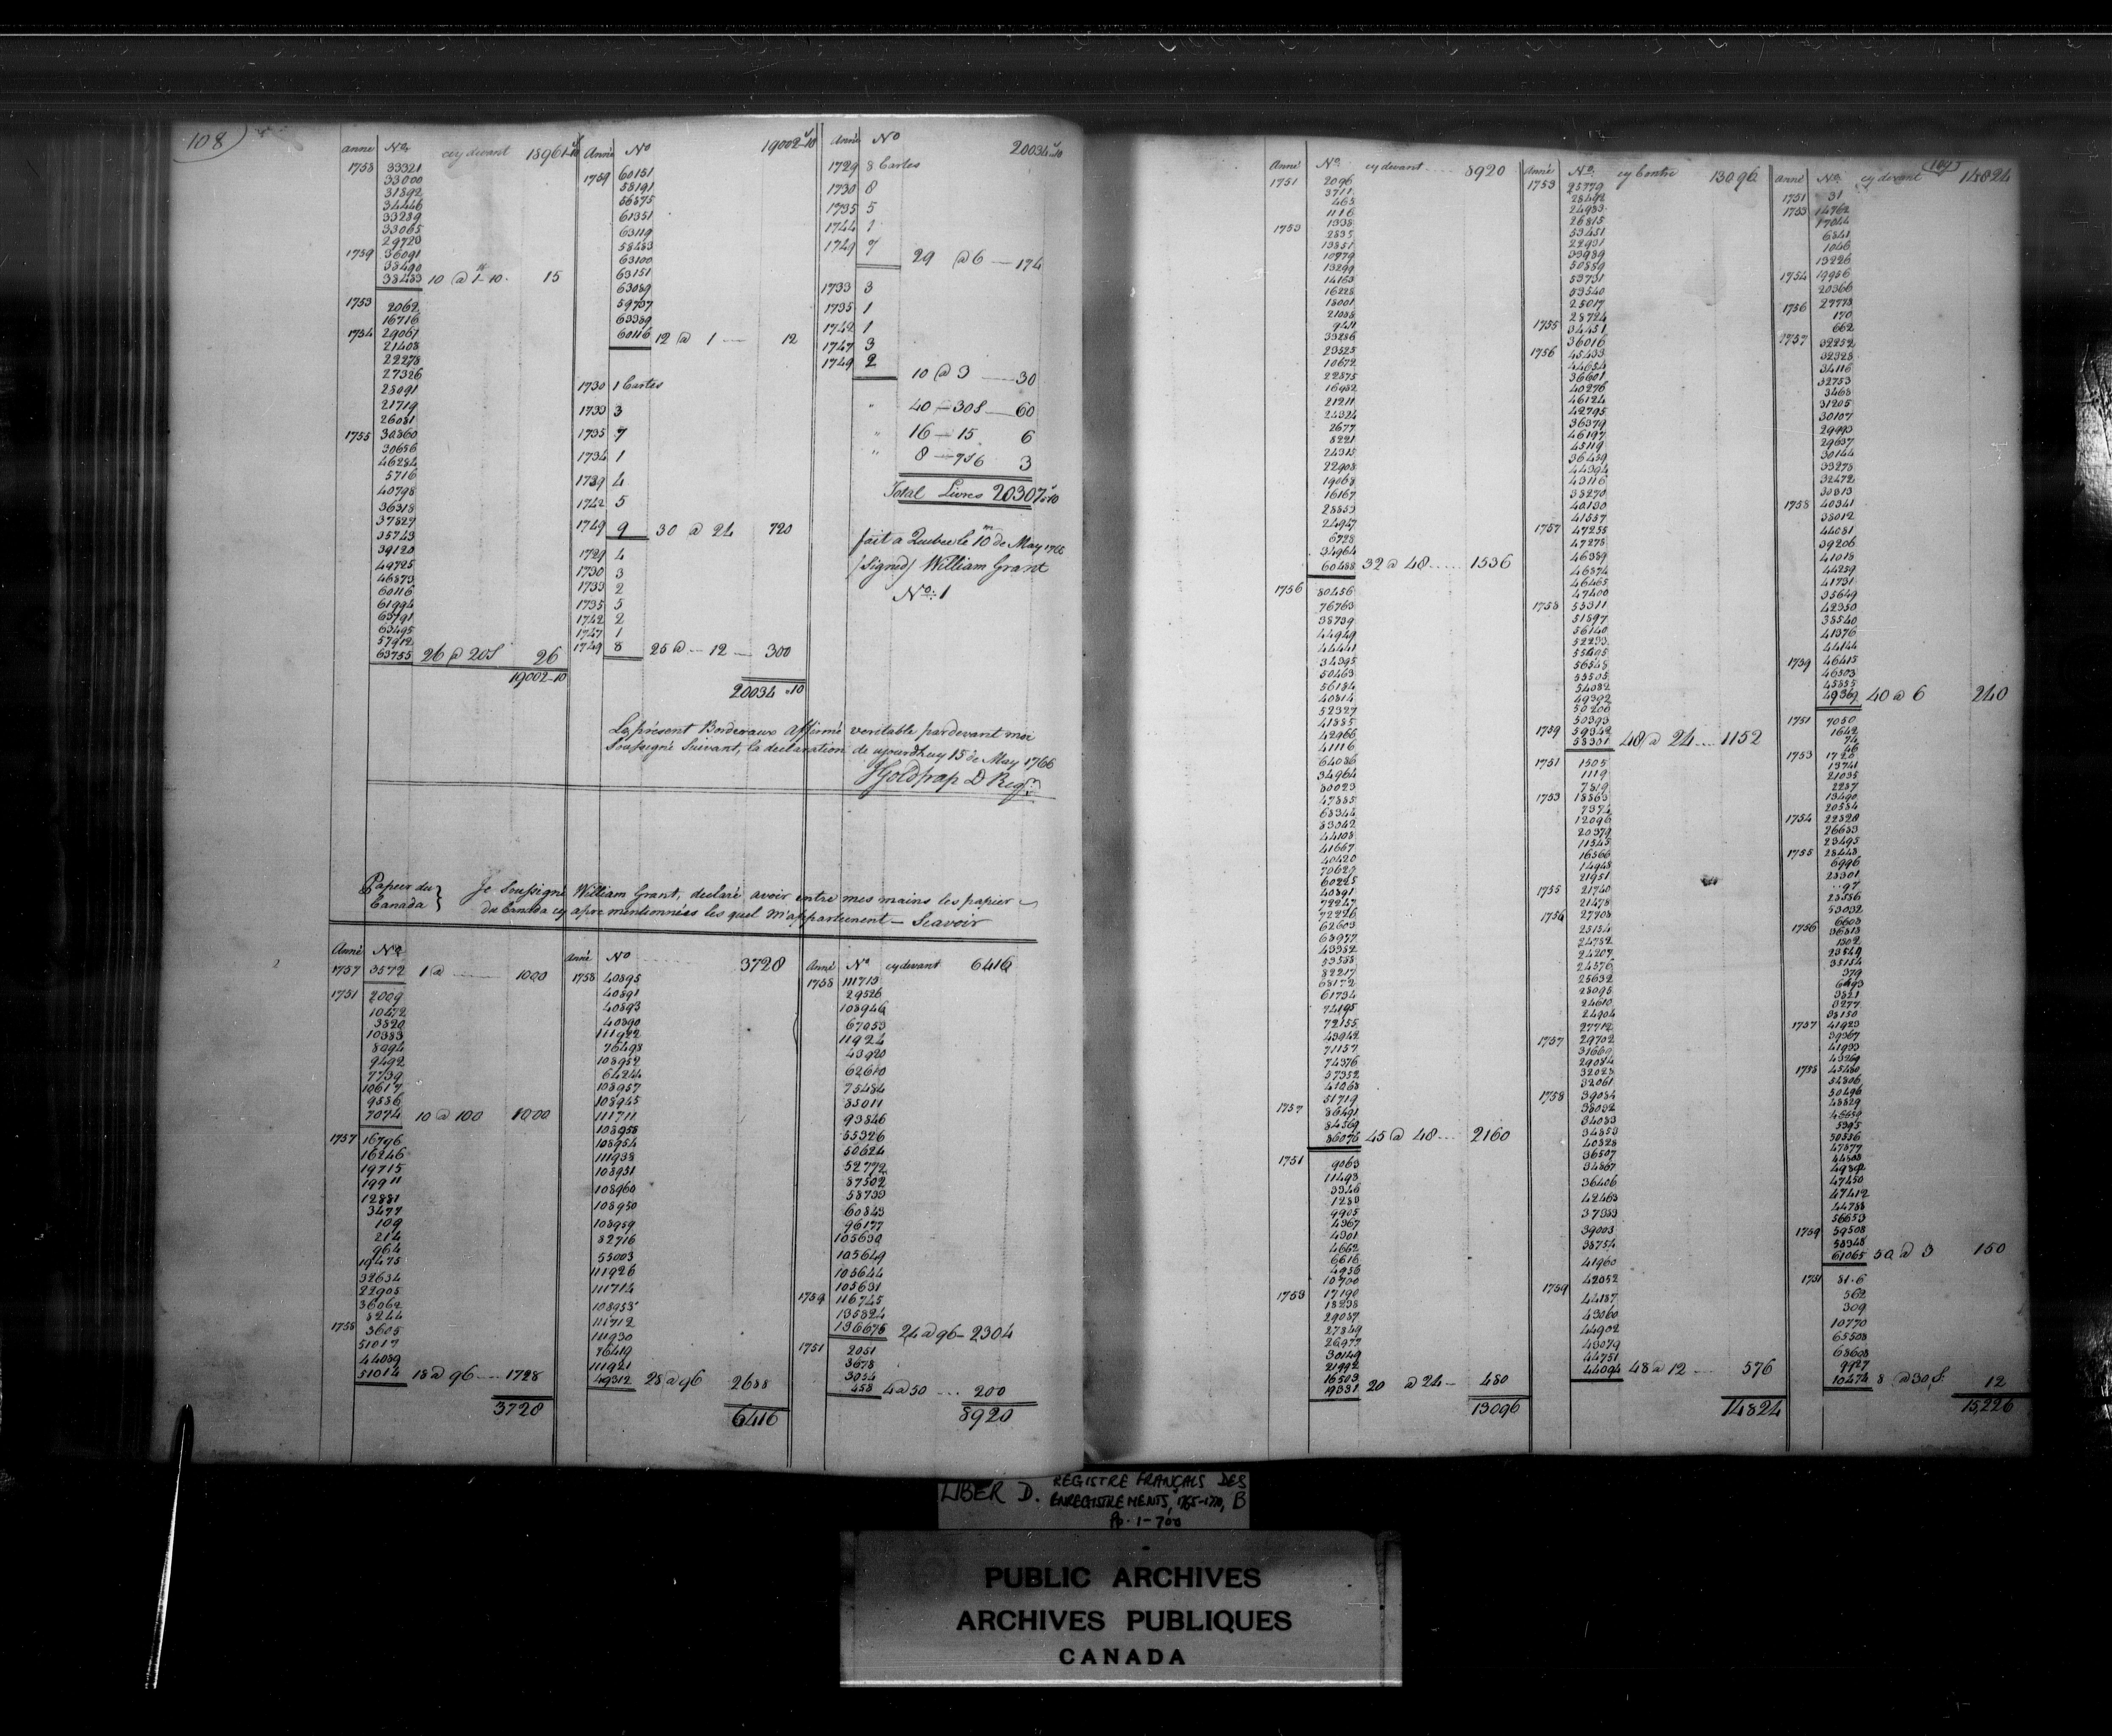 108
Anné Nos cy devant 18961.10
1758 33321
33000
31892
34446
33239
33065
29723
1759 36091
38490
38433 10 @ 1-10. 15
1753 2062
16716
1754 29061
21408
22278
27326
28091
21719
26081
1755 30360
30656
46284
5716
40798
36318
37827
35743
39120
49725
46873
60116
61994
63791
63495
57912
63755 26 @ 20s 26
19002-10
Anné No 19002-10
1759 60151
58191
56875
61351
63119
58483
63100
63151
63089
59737
63389
60116 12 @ 1 12
1730 1 Cartes
1733 3
1735 7
1734 1
1739 4
1742 5
1749 9 30 @ 24 720
1729 4
1730 3
1733 2
1735 5
1742 2
1747 1
1749 8 25 @ 12 300
20034.10
Anné No 20034.10
1729 8 Cartes
1730 8
1735 5
1744 1
1749 7
29 @ 6 174
1733 3
1735 1
1742 1
1747 3
1749 2
10 @ 3 30
" 40 - 30s 60
" 16 - 15 6
" 8 - 7s6 3
Total Livres 20307.10
fait a Quebec le 10m de May 1766
(Signed) William Grant
No: 1
Le présent Bordereaux affirmé veritable pardevant moi
Soussigné Suivant, la declaration de aujourdhuy 15 de May 1766
JGoldfrap D Regr.
Papier du Canada } Je Soussigné William Grant, declare avoir entre mes mains les papier
du Canada cy apre mentionnées les quel m'appartienent — Scavoir
Anné No
1757 3572 1 @ 1000
1751 2009
10472
3820
10383
8094
9492
7739
10617
9536
7074 10 @ 100 1000
1757 16796
16246
19715
19911
12881
3477
109
214
964
19475
32634
22905
36062
8244
1758 3605
51017
44089
51014 18 @ 96 1728
3728
Anné No 3728
1758 40895
40891
40893
40890
111922
76498
108952
64244
108957
108945
111711
108958
108954
111938
108951
108960
108950
108959
82716
53003
111926
111714
108953
111712
111930
76419
111921
49312 28 @ 96 2688
6416
Anné No cy devant 6416
1758 111713
29526
108946
67053
11924
43920
62610
75484
35011
93846
55326
50624
52772
87502
58733
60843
96177
105630
105649
105644
105631
1759 116745
135824
136676 24 @ 96 - 2304
1751 2051
3678
3054
458 4 @ 50 200
8920
Anné No. cy devant 8920
1751 2096
3711
463
1116
1338
1753 2835
13851
10279
13299
14163
16228
18001
21038
9411
33286
23525
10672
22875
16982
21211
24324
2677
8221
24315
22908
19068
16167
28853
24947
6728
34964
60488 32 @ 48 1536
1756 80456
76763
38739
44949
44441
34395
50463
56184
40814
52327
41885
42966
41116
64086
34964
80023
47885
68344
83042
44108
41667
40420
70627
60225
40391
72247
72226
62603
68977
43352
53588
82217
68172
61734
74195
72155
43942
71157
74376
37352
41068
51719
1757 86491
84569
86076 45 @ 48 2160
1751 9063
11493
3346
1283
9905
4367
4301
4662
6616
4936
10700
1753 17190
18238
29087
27849
26977
30149
21992
16503
19331 20 @ 24 480
13096
Anné No. cy Contre 13096
1753 25779
28492
24983
26815
53451
22931
33989
50859
53731
53540
25017
28724
1755 34451
36016
1756 45433
44654
36601
40276
46124
42795
36379
46197
45119
36489
44394
43116
38270
40130
41557
1757 47255
47278
46389
46874
46465
47400
1758 53311
51897
56140
52293
55495
56548
53505
54082
49392
50200
50393
1759 59342
58301 48 @ 24 1152
1751 1505
1119
7819
1753 18863
7374
12096
20379
11545
16566
14948
21951
1755 21740
21478
1756 27708
25154
24782
24207
24576
25632
28095
24610
24904
27712
1757 29702
31669
29084
32028
32061
1758 39084
38032
34083
34853
40328
36507
34867
36406
42463
37333
39003
38754
41960
1759 42052
44187
43060
44902
43079
44751
44094 48 @ 12 576
14824
109
Anné No. cy devant 14824
1751 31
1753 14762
17044
6841
1046
13226
1754 19956
20366
1756 27773
170
662
1757 32252
32328
34116
32753
3468
31205
30107
29993
29637
30144
33278
32472
30813
1758 40341
38012
44081
39206
41018
44259
41731
35649
42350
38540
41376
44144
1759 46415
46303
45855
49369 40 @ 6 240
1751 7050
1642
74
46
1753 1726
13741
21035
2237
13490
20584
1754 22328
26683
23495
1755 28448
6996
28301
97
23586
53032
6603
1756 36313
1302
23549
35154
379
6493
3821
3277
38150
1757 41923
39367
41993
43269
1758 45480
54806
50496
48829
46659
5395
50536
47877
44808
49302
47450
47412
44788
56653
1759 59508
58348
61065 50 @ 3 150
1751 81.6
562
309
10770
65508
68608
9927
10474 8 @ 30s. 12
15,226
LIBER D. REGISTRE FRANÇAIS DES
ENREGISTREMENTS, 1765-1770, B
Pp. 1-700
PUBLIC ARCHIVES
ARCHIVES PUBLIQUES
CANADA